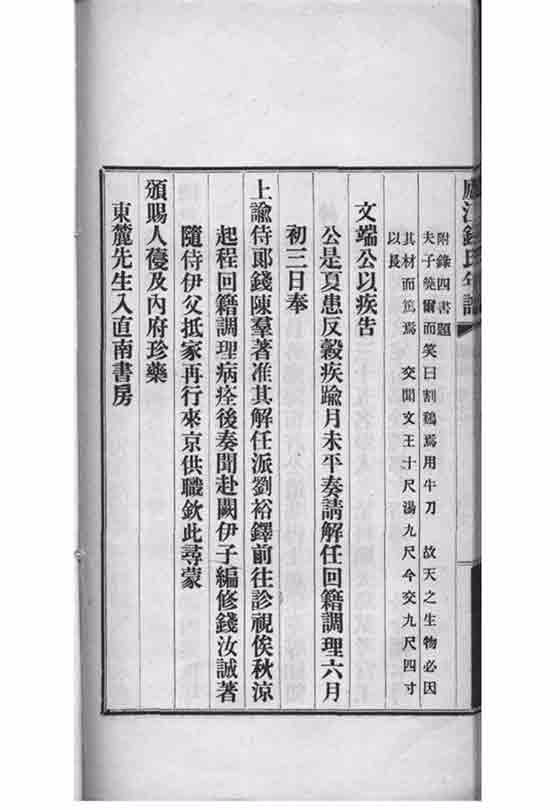 廬江錢氏年譜
附錄四書題
夫子莞爾而笑曰割鷄焉用牛刀　故天之生物必因
其材而篤焉　交聞文王十尺湯九尺今交九尺四寸
以長
文端公以疾告
公是夏患反穀疾踰月未平奏請解任回籍調理六月
初三日奉
上諭侍郎錢陳羣著准其解任派劉裕鐸前往診視俟秋涼
起程回籍調理病痊後奏聞赴闕伊子編修錢汝誠著
隨侍伊父抵家再行來京供職欽此尋蒙
頒賜人葠及內府珍藥
東麓先生入直南書房